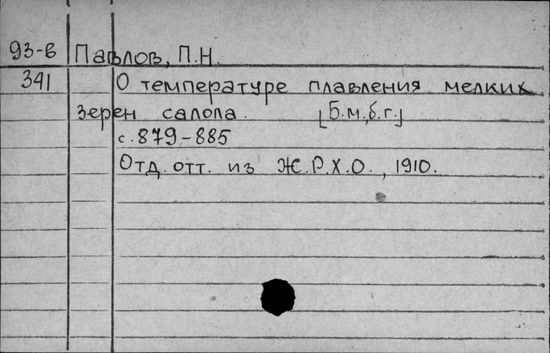 93-в Павлов, П.Н.
341 О температуре плавления мелких
зерен салола. [Б.м.,б.г.]
с.879-885
Отд. отт. из Ж.Р.Х.О., 1910.